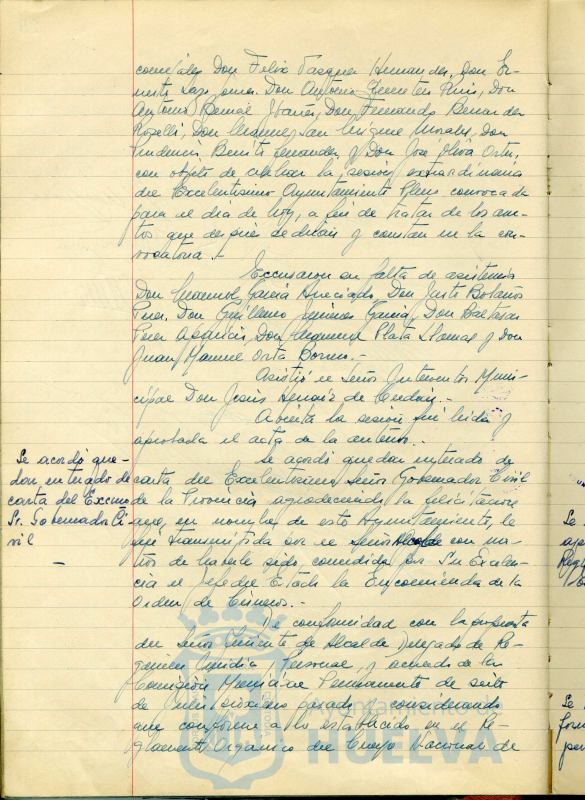 concejales Don Felix Vasquez Hernandez, Don Er-
nesto Lazo Jones, Don Antonio Fuentes Ruiz, Don
Antonio Bernal Ibañez, Don Fernando Bernardez
Roselli, Don Manuel San Miguel Morales, Don
Prudencio Benito Fernandez y Don Jose Oliva Orta,
con objeto de celebrar la sesion extraordinaria
del Excelentisimo Ayuntamiento Pleno convocada
para el dia de hoy, a fin de tratar de los asun-
tos que despues se dirán y constan en la con-
vocatoria.-
Excusaron su falta de asistencia
Don Manuel Garcia Don Justo Bolaños
Perez, Don Guillermo Jimenez Garcia, Don Baltasar
Perez Asencio, Don Manuel Plata Llamas y Don
Juan Manuel Orta Borrero.-
Asistió el Señor Interventor Muni-
cipal Don Jesus de Cerdán.-
Abierta la sesión fué leída y
aprobada el acta de la anterior.-
Se acordó que-
dar enterado de
carta del Excmo
Sr. Gobernador Ci-
vil
Se acordó quedar enterado de
carta del Excelentisimo Señor Gobernador Civil
de la Provincia agradeciendo la felicitación
que, en nombre de este Ayuntamiento, le
fué transmitida por el Señor Alcalde con mo-
tivo de haberle sido concedida por Su Excelen-
cia el Jefe del Estado la Encomienda de la
Orden de Cisneros.-
De conformidad con la propuesta
del Señor Teniente de Alcalde Delegado de Re-
gimen Juridico, Personal, y acuerdo de la
Comisión Municipal Permanente de seis
de Julio próximo pasado y considerando
que conforme a lo establecido en el Re-
glamento Orgánico del Cuerpo Nacional de
Ayuntamiento de
HUELVA